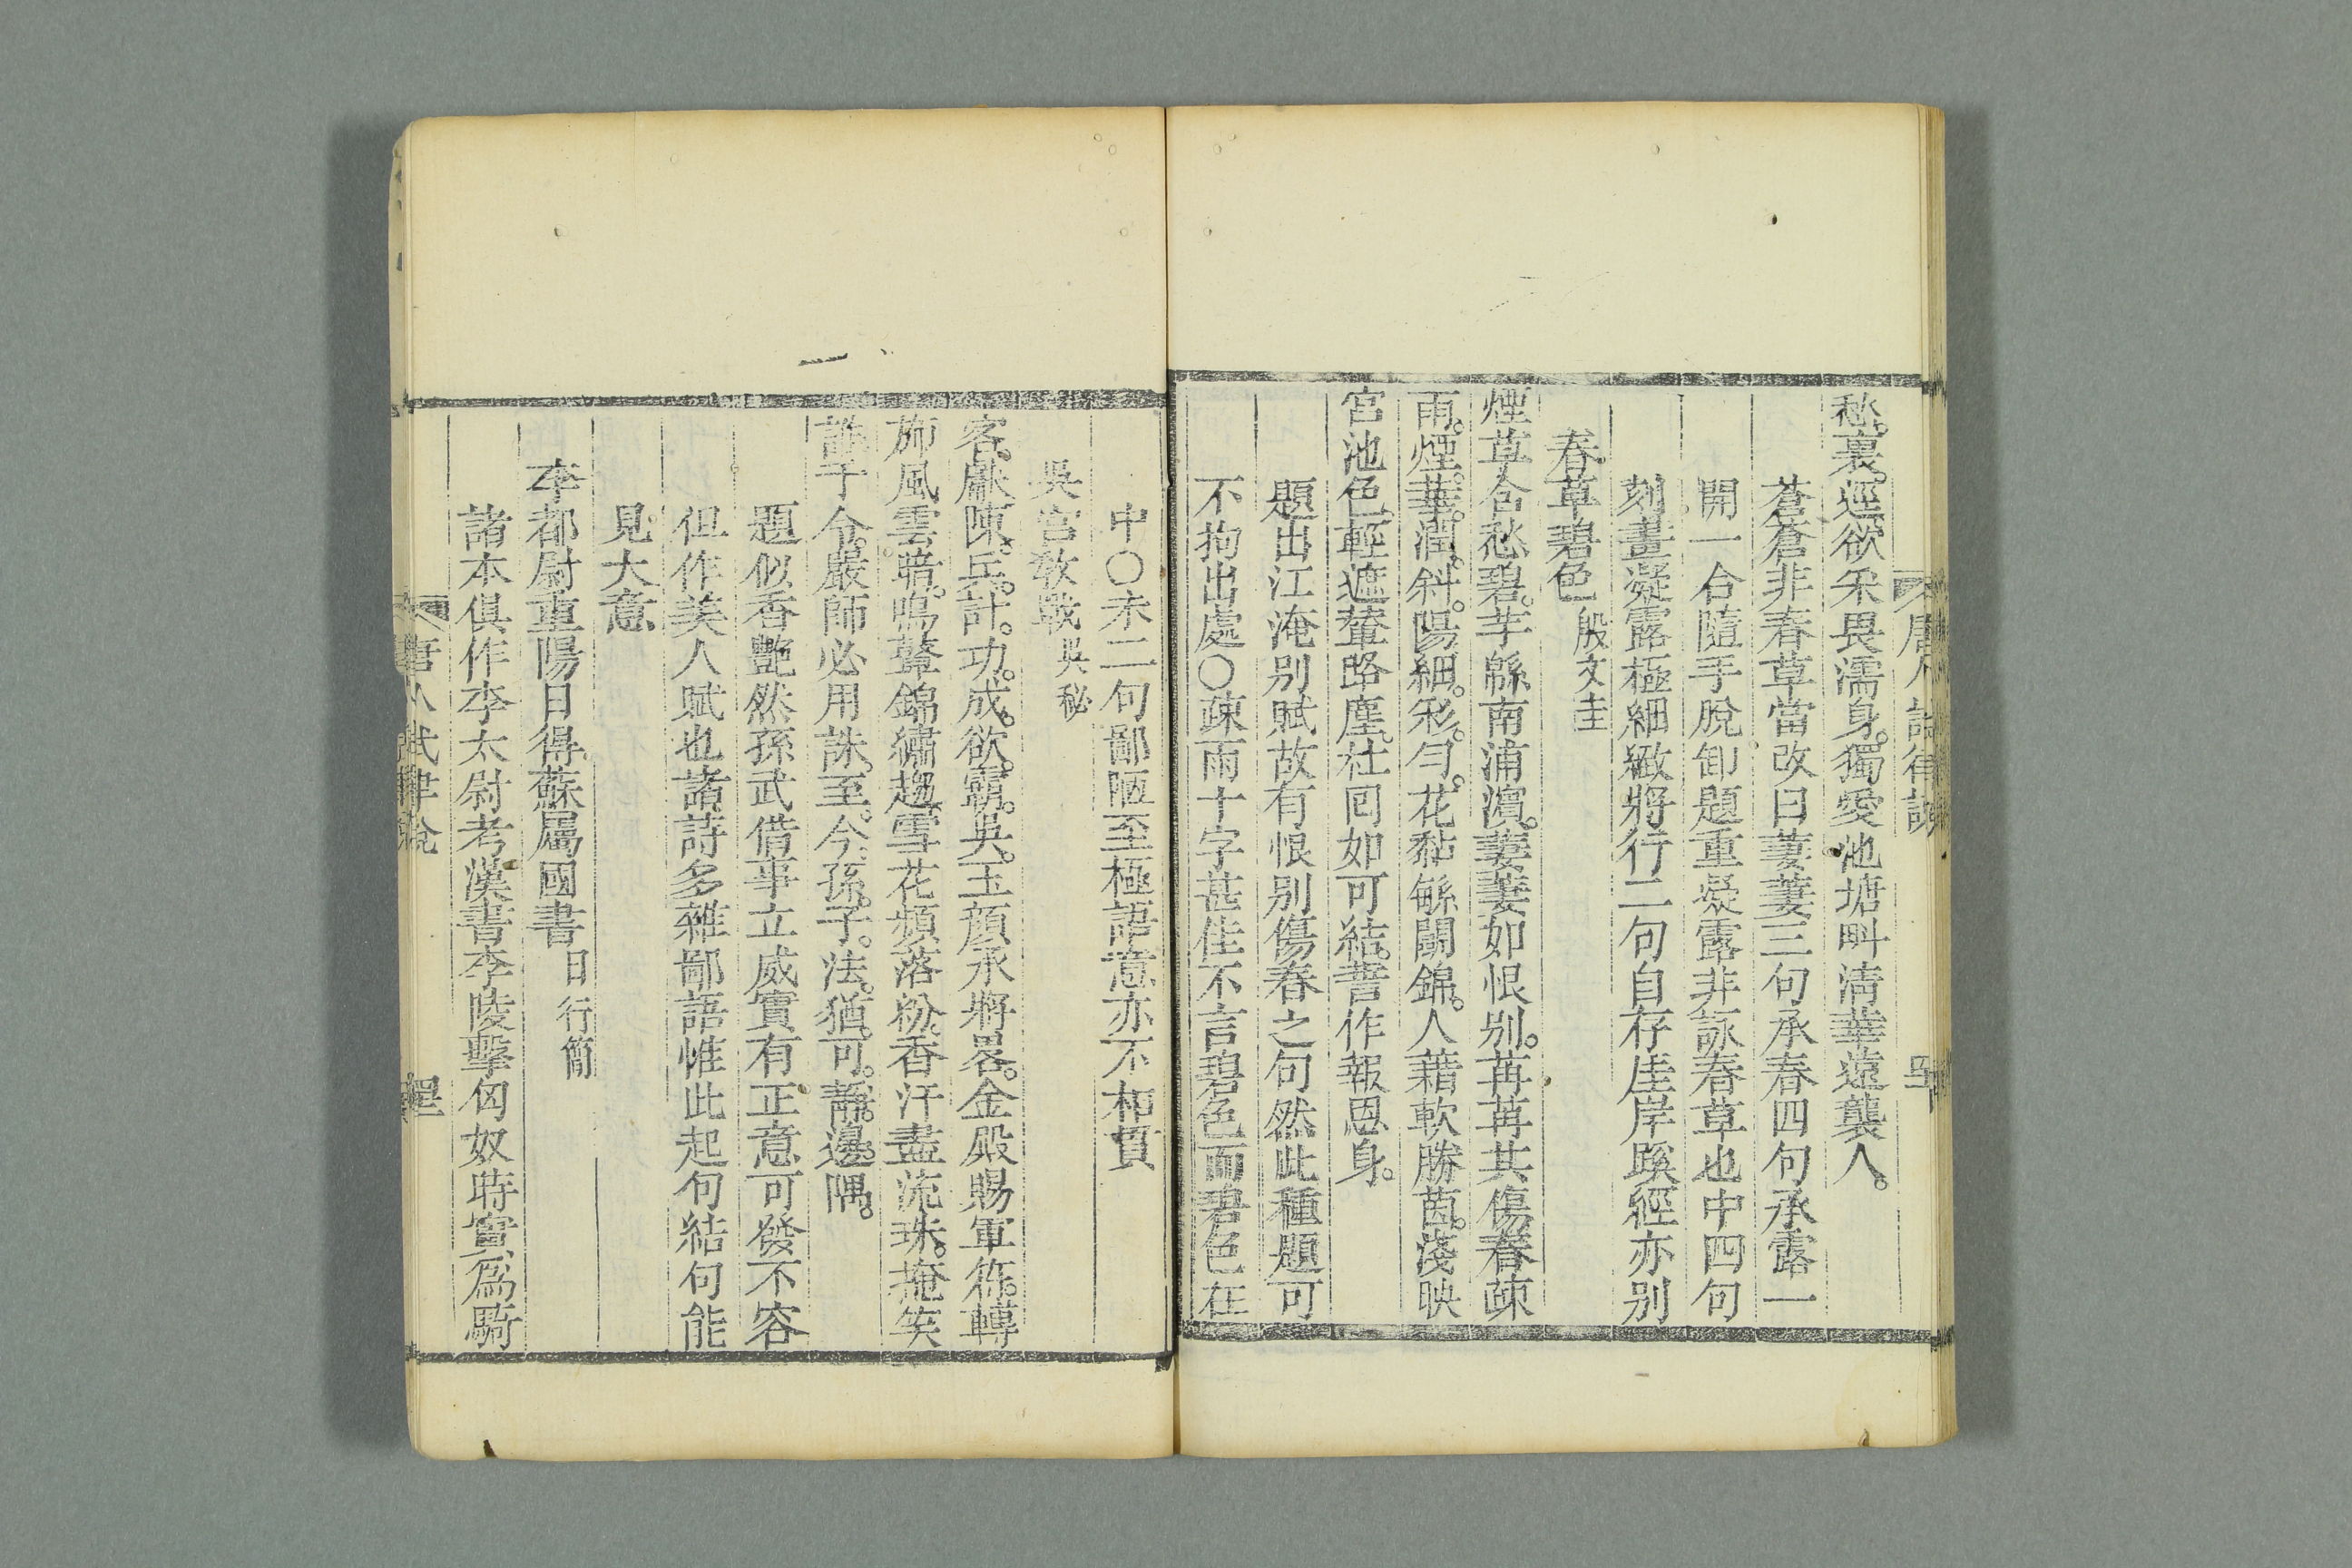 唐人試律說
愁裏。逕欲采畏濡身。獨愛池塘畔清華遠襲人。
蒼蒼非春草當改曰萋萋三句承春四句承露一
開一合隨手脫卸題重凝露非詠春草也中四句
刻畫凝露極細緻將行二句自存崖岸蹊徑亦别
春草碧色 殷文圭
煙草合愁碧。芊緜南浦濱。萋萋如恨别。苒苒共傷春疎
雨。煙。華。潤。斜。陽。細。彩。勻。花黏繁鬭錦。人藉軟勝茵。淺映
宮池色。輕遮輦路塵。杜回如可結。誓作報恩身。
題出江淹别賦故有恨别傷春之句然此種題可
不拘出處○疎雨十字甚佳不言碧色而碧色在
中○末二句鄙陋至極語意亦不相貫
吳宮教戰 吳秘
客。獻。陳。兵。計。功。成。欲。霸。吳。玉顏承將畧。金殿賜軍符。轉
斾風雲暗。鳴鼙錦繡趨。雪花頻落粉。香汗盡流珠。掩笑
誰干令。嚴師必用誅。至。今。孫。子。法。猶。可。靜。邊。隅。
題似香艷然孫武借事立威實有正意可發不容
但作美人賦也諸詩多雜鄙語惟此起句結句能
見大意
李都尉重陽日得蘇屬國書 白行簡
諸本俱作李太尉考漢書李陵擊匈奴時寔爲騎
唐人試律說